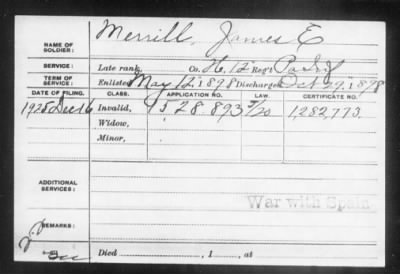 Merrill, James E
NAME OF SOLDIER:
SERVICE: Late rank, Co. H, 12" Reg't Pa Inf
TERM OF SERVICE: Enlisted May 12, 1898 Discharged Oct 29, 1898
DATE OF FILING. CLASS. APPLICATION NO. LAW. CERTIFICATE NO.
1925 Dec 16 Invalid, 1528893 1,282,773.
Widow,
Minor,
ADDITIONAL SERVICES:
War with Spain
REMARKS:
Died , 1 , at